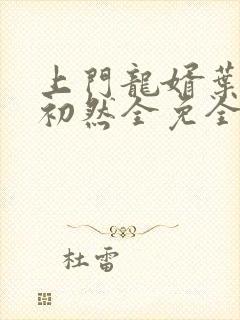 上門龍婿葉
初然全免全
杜雷